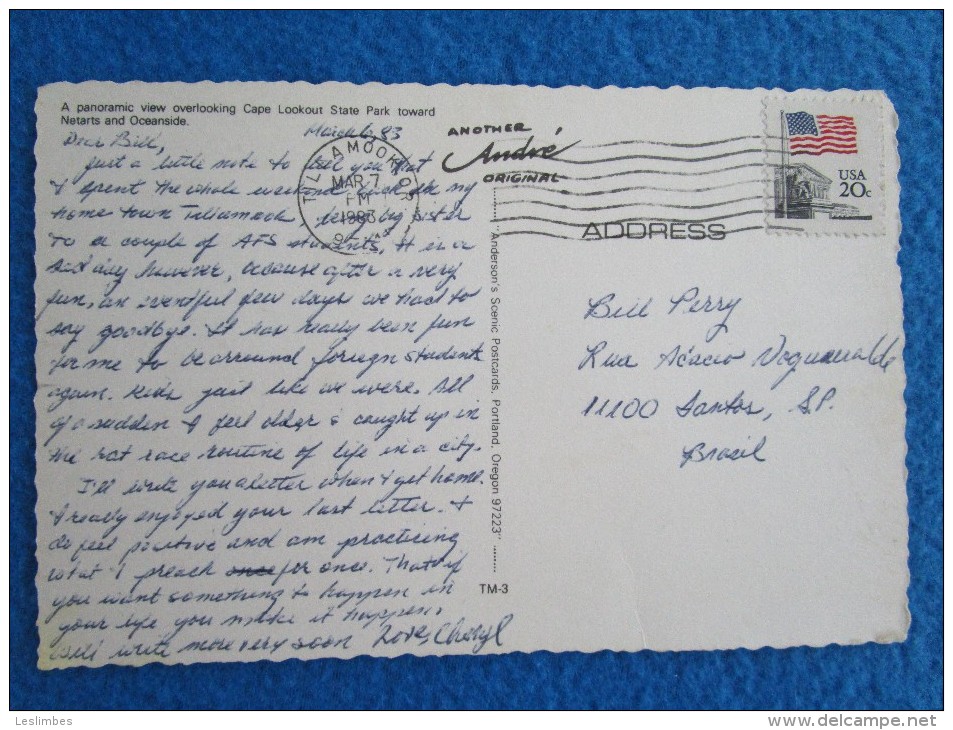 A panoramic view overlooking Cape Lookout State Park toward
Netarts and Oceanside.
March 6, 83
Dear Bill,
Just a little note to tell you that
I spent the whole weekend back in my
home town Tillamook being big sister
to a couple of AFS students. It is a
sad day however, because after a very
fun, an eventful few days we had to
say goodbye. It has really been fun
for me to be arround foriegn students
again. Kids just like we were. All
of a sudden I feel older & caught up in
the rat race routine of life in a city.
I'll write you a letter when I get home.
I really enjoyed your last letter. I
do feel positive and am practicing
what I preach for once. That if
you want something to happen in
your life you make it happen.
Will write more very soon Love, Cheryl
TILLAMOOK OR
MAR 7
PM
1983
ANOTHER
André
ORIGINAL
USA
20c
ADDRESS
"Anderson's Scenic Postcards, Portland, Oregon 97223"
TM-3
Bill Perry
Rua Acácio
11100 Santos, S.P.
Brasil
Leslimbes
www.delcampe.net